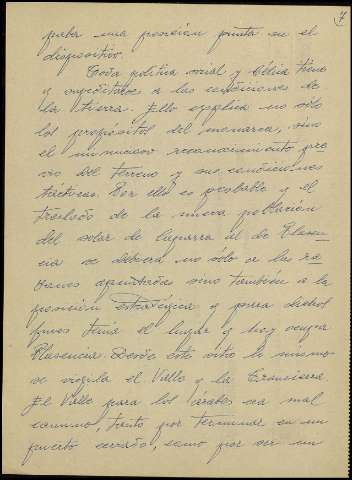 7
paba una posición punta en el
dispositivo.
Toda política social y bélica tiene
supeditados a las condiciones de
la tierra. Ello explica no sólo
los propósitos del monarca, sino
el minucioso reconocimiento pre-
vio del terreno y sus condiciones
tácticas. Por ello es probable y el
traslado de la nueva población
del solar de al de Plasen-
cia se debiera no sólo a las ra-
zones apuntadas sino también a la
posición estratégica y para dichos
fines tenía el lugar q hoy ocupa
Plasencia. Desde este sitio lo mismo
se vigila el Valle y la Transierra.
El Valle para los árabes era mal
camino, tanto por terminar en un
puerto cerrado, como por ser un